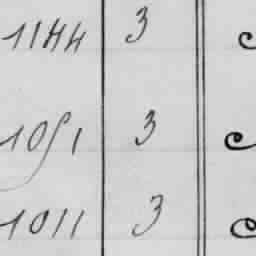 1144 3
1051 3
1011 3